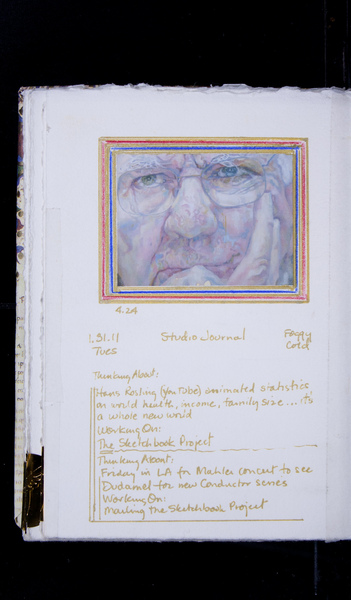 4.24
1.31.11 Studio Journal Foggy
Tues Cold
Thinking About:
Hans Rosling (YouTube) animated statistics
on world health, income, family size... it's
a whole new world
Working On:
The Sketchbook Project
Thinking About:
Friday in LA for Mahler concert to see
Dudamel for new Conductor series
Working On:
Mailing the Sketchbook Project